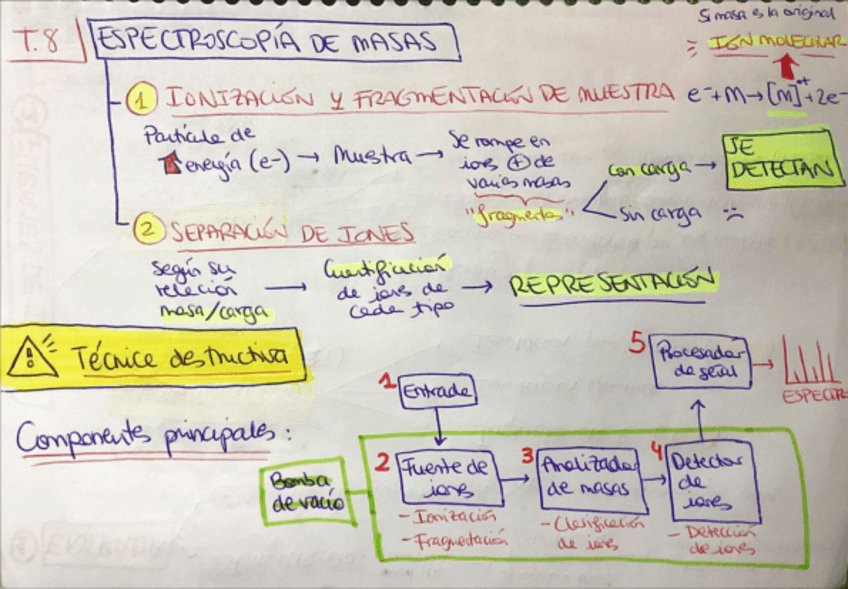 Si masa es la original
T.8 ESPECTROSCOPÍA DE MASAS
ION MOLECULAR
1 IONIZACIÓN Y FRAGMENTACIÓN DE MUESTRA e⁻+M→[M]•⁺+2e⁻
Partícula de
energía (e-) → Muestra →
Se rompe en
iones ⊕ de
varias masas
"fragmentos"
con carga →
SE
DETECTAN
sin carga
2 SEPARACIÓN DE IONES
Según su
relación
masa/carga
→ Cuantificación
de iones de
cada tipo
→ REPRESENTACIÓN
! Técnica destructiva
Componentes principales:
Bomba
de vacío
1 Entrada
2 Fuente de
iones
- Ionización
- Fragmentación
3 Analizador
de masas
- Clasificación
de iones
4 Detector
de
iones
- Detección
de iones
5 Procesador
de señal
ESPECTR